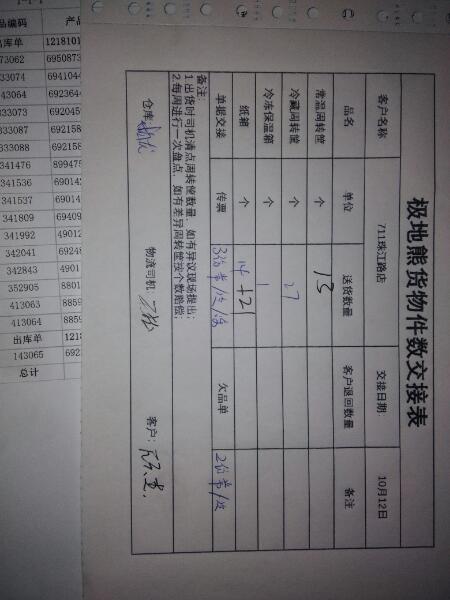 极地熊货物件数交接表
客户名称 711珠江路店 交接日期: 10月12日
品名 单位 送货数量 客户退回数量 备注
常温周转筐 个 13
冷藏周转筐 个 27
冷冻保温箱 个 1
纸箱 个 14+21
单据交接 传票 欠品单
备注:
1.出货时司机清点周转筐数量，如有异议现场提出;
2.每周进行一次盘点，如有差异周转筐按个数赔偿;
仓库: 物流司机: 客户:
品编码
出库单 1218101
73062 6950873
33074 6941044
43064 6923644
33073 692045
33087 692158
33088 692158
341476 899475
341536 69014
341537 69014
341809 69409
341992 49012
342041 69248
342843 4901
352905 8801
413063 8859
413064 8859
出库单 1218
143065 692
总计